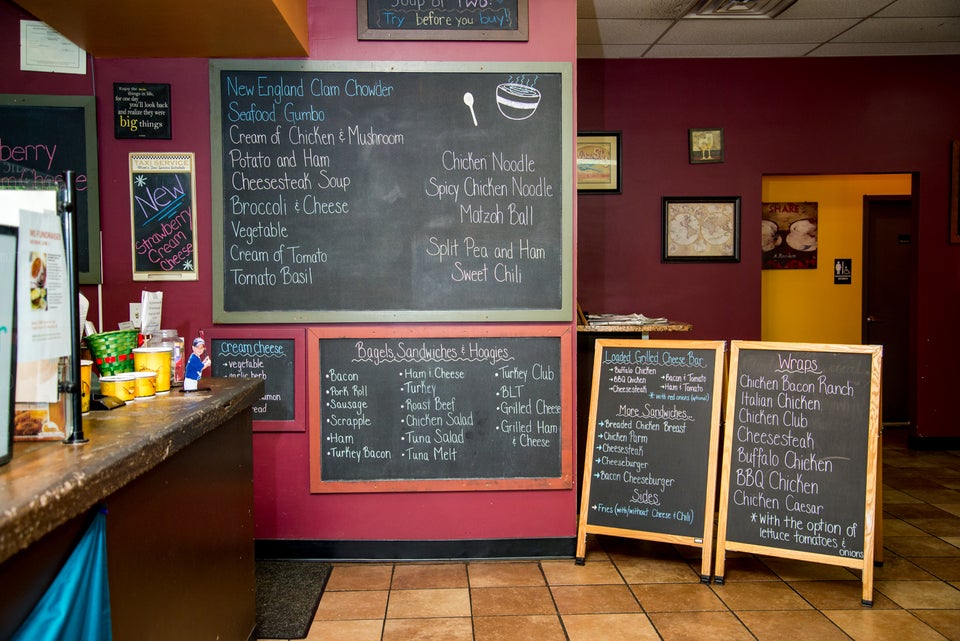 Soup or Two!
Try before you buy!
Enjoy the
things in life,
for one day
you'll look back
and realize they were
big things
TAXI SERVICE
New
Strawberry
Cream
Cheese
New England Clam Chowder
Seafood Gumbo
Cream of Chicken & Mushroom
Potato and Ham
Cheesesteak Soup
Broccoli & Cheese
Vegetable
Cream of Tomato
Tomato Basil
Chicken Noodle
Spicy Chicken Noodle
Matzoh Ball
Split Pea and Ham
Sweet Chili
cream cheese
vegetable
Bagels, Sandwiches & Hoagies
Bacon
Pork Roll
Sausage
Scrapple
Ham
Turkey Bacon
Ham & Cheese
Turkey
Roast Beef
Chicken Salad
Tuna Salad
Tuna Melt
Turkey Club
BLT
Grilled Cheese
Grilled Ham
& Cheese
Loaded Grilled Cheese Bar
Buffalo Chicken
BBQ Chicken
Cheesesteak
Bacon & Tomato
Ham & Tomato
*with red onions (optional)
More Sandwiches...
Breaded Chicken Breast
Chicken Parm
Cheesesteak
Cheeseburger
Bacon Cheeseburger
Sides
Fries (with/without Cheese & Chili)
Wraps
Chicken Bacon Ranch
Italian Chicken
Chicken Club
Cheesesteak
Buffalo Chicken
BBQ Chicken
Chicken Caesar
*with the option of
lettuce tomatoes &
onions
SHARE